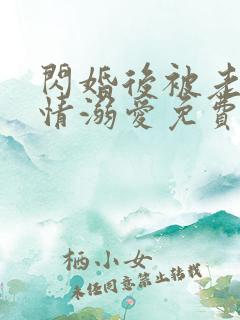 閃婚後被老
情溺愛免費
栖小女
未任同意禁止转载